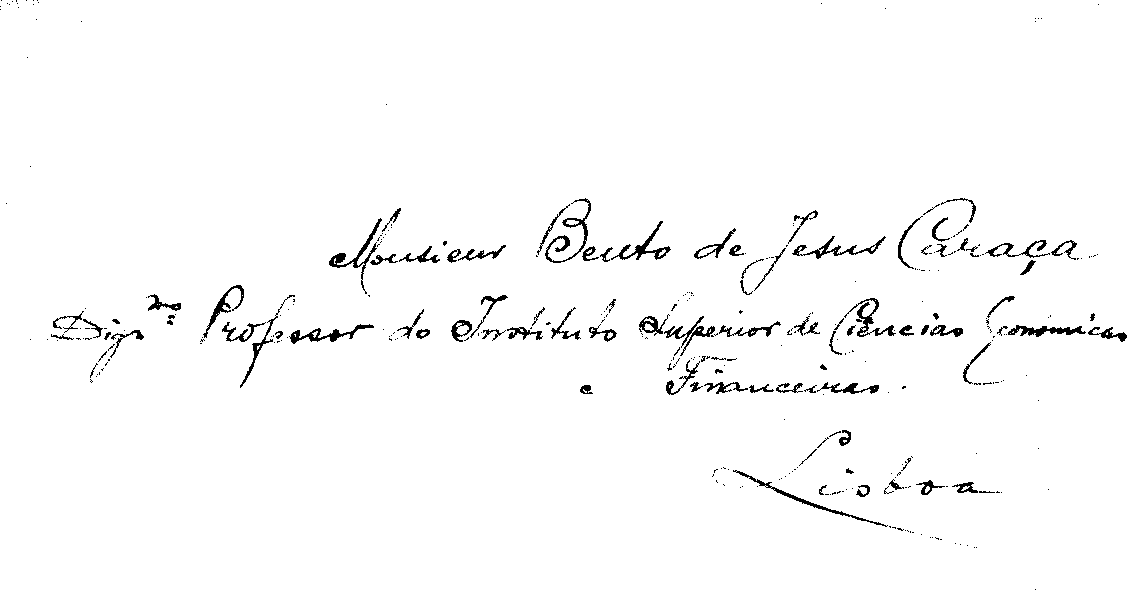 Monsieur Bento de Jesus Caraça
Digᵐᵒ Professor do Instituto Superior de Ciências Económicas
e Financeiras.
Lisboa